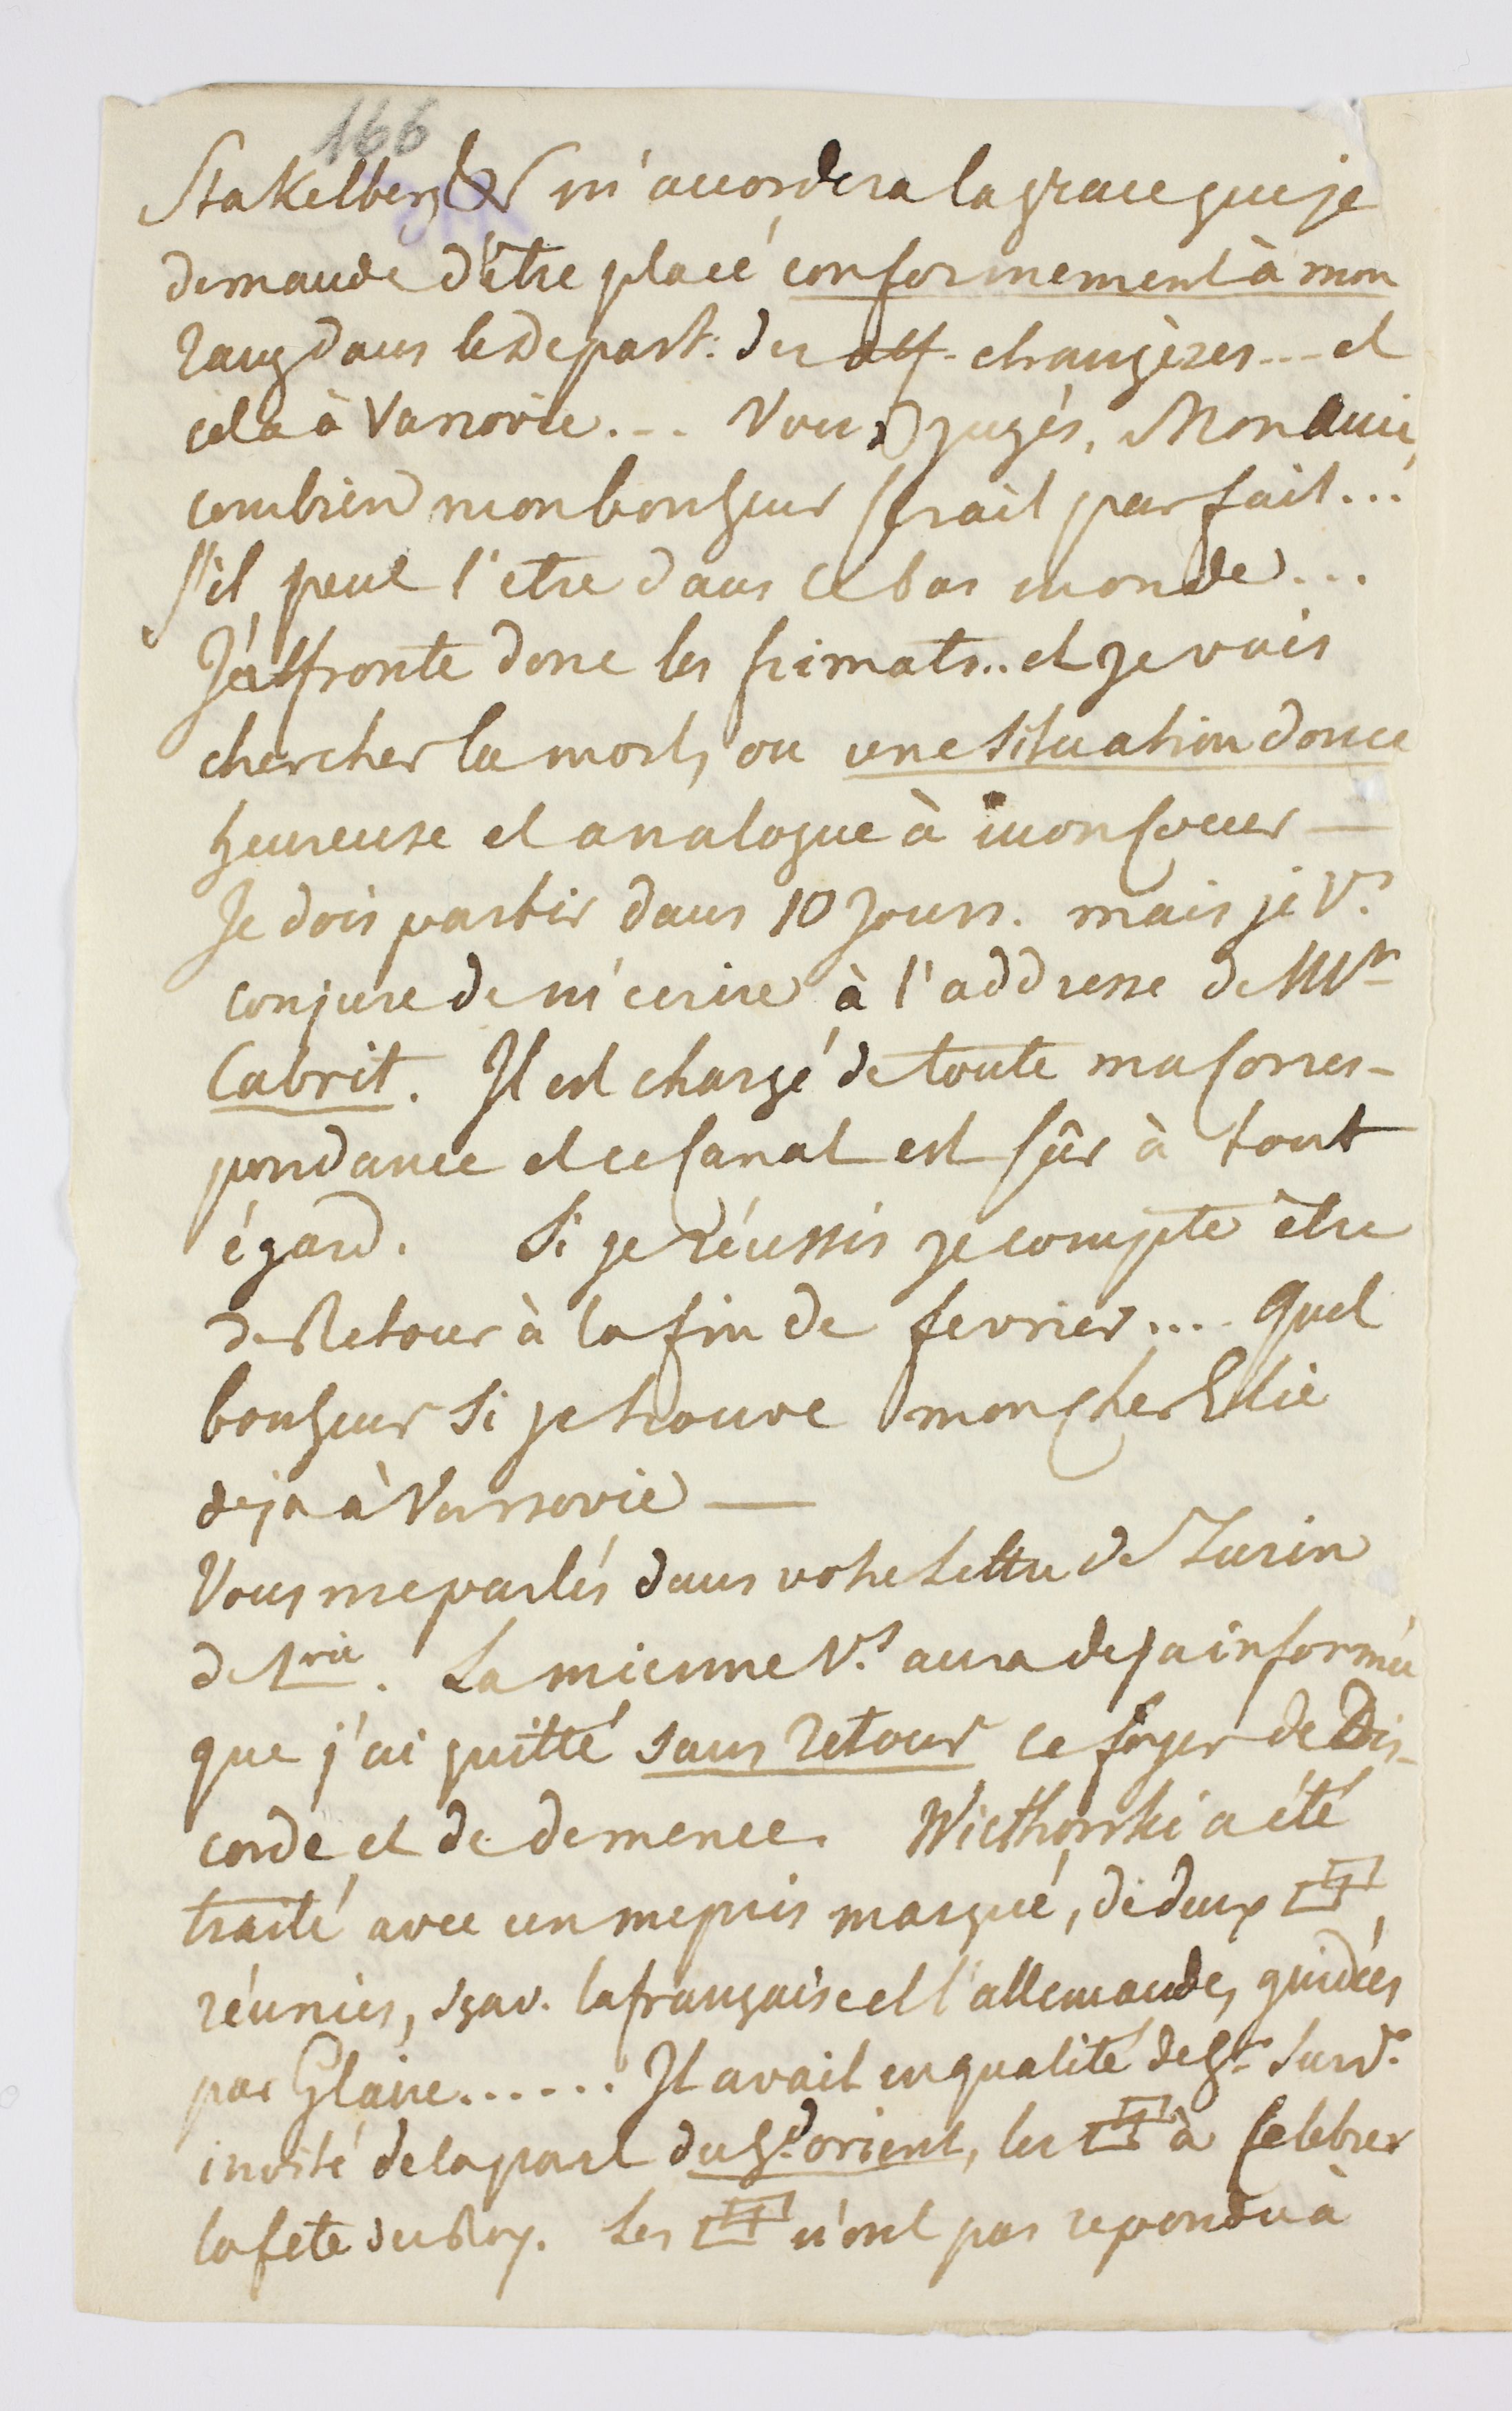 166
Stakelberg &c m'accordera la grace que je
demande d'être placé conformement à mon
rang dans le Depart: des aff. etrangères --- et
cela à Varsovie. -- Vous jugés, Mon ami,
combien mon bonheur serait parfait...
s'il peut l'etre dans ce bas monde...
J'affronte donc les frimats.. et je vais
chercher la mort, ou une situation douce
heureuse et analogue à mon Coeur —
Je dois partir dans 10 jours. mais je V.s
conjure de m'ecrire à l'addresse de Mr
Cabrit. Il est chargé de toute ma Corres-
pondance et ce Canal est sûr à tout
égard. Si je réussis je compte être
de Retour à la fin de fevrier.... Quel
bonheur si je trouve mon Cher Elie
deja à Varsovie —
Vous me parlés dans votre Lettre de Turin
de . La mienne V.s aura deja informée
que j'ai quitté sans retour ce foyer de Dis-
corde et de demence. Wielhorski a été
traité avec un mepris marqué, de deux
réunies, sçav. la française et l'allemande, guidées
par Glaire...... Il avait en qualité de Gr. Surv.
invité de la part du Gd. orient, les à Celebrer
la fete du Roy. Les n'ont pas repondu à